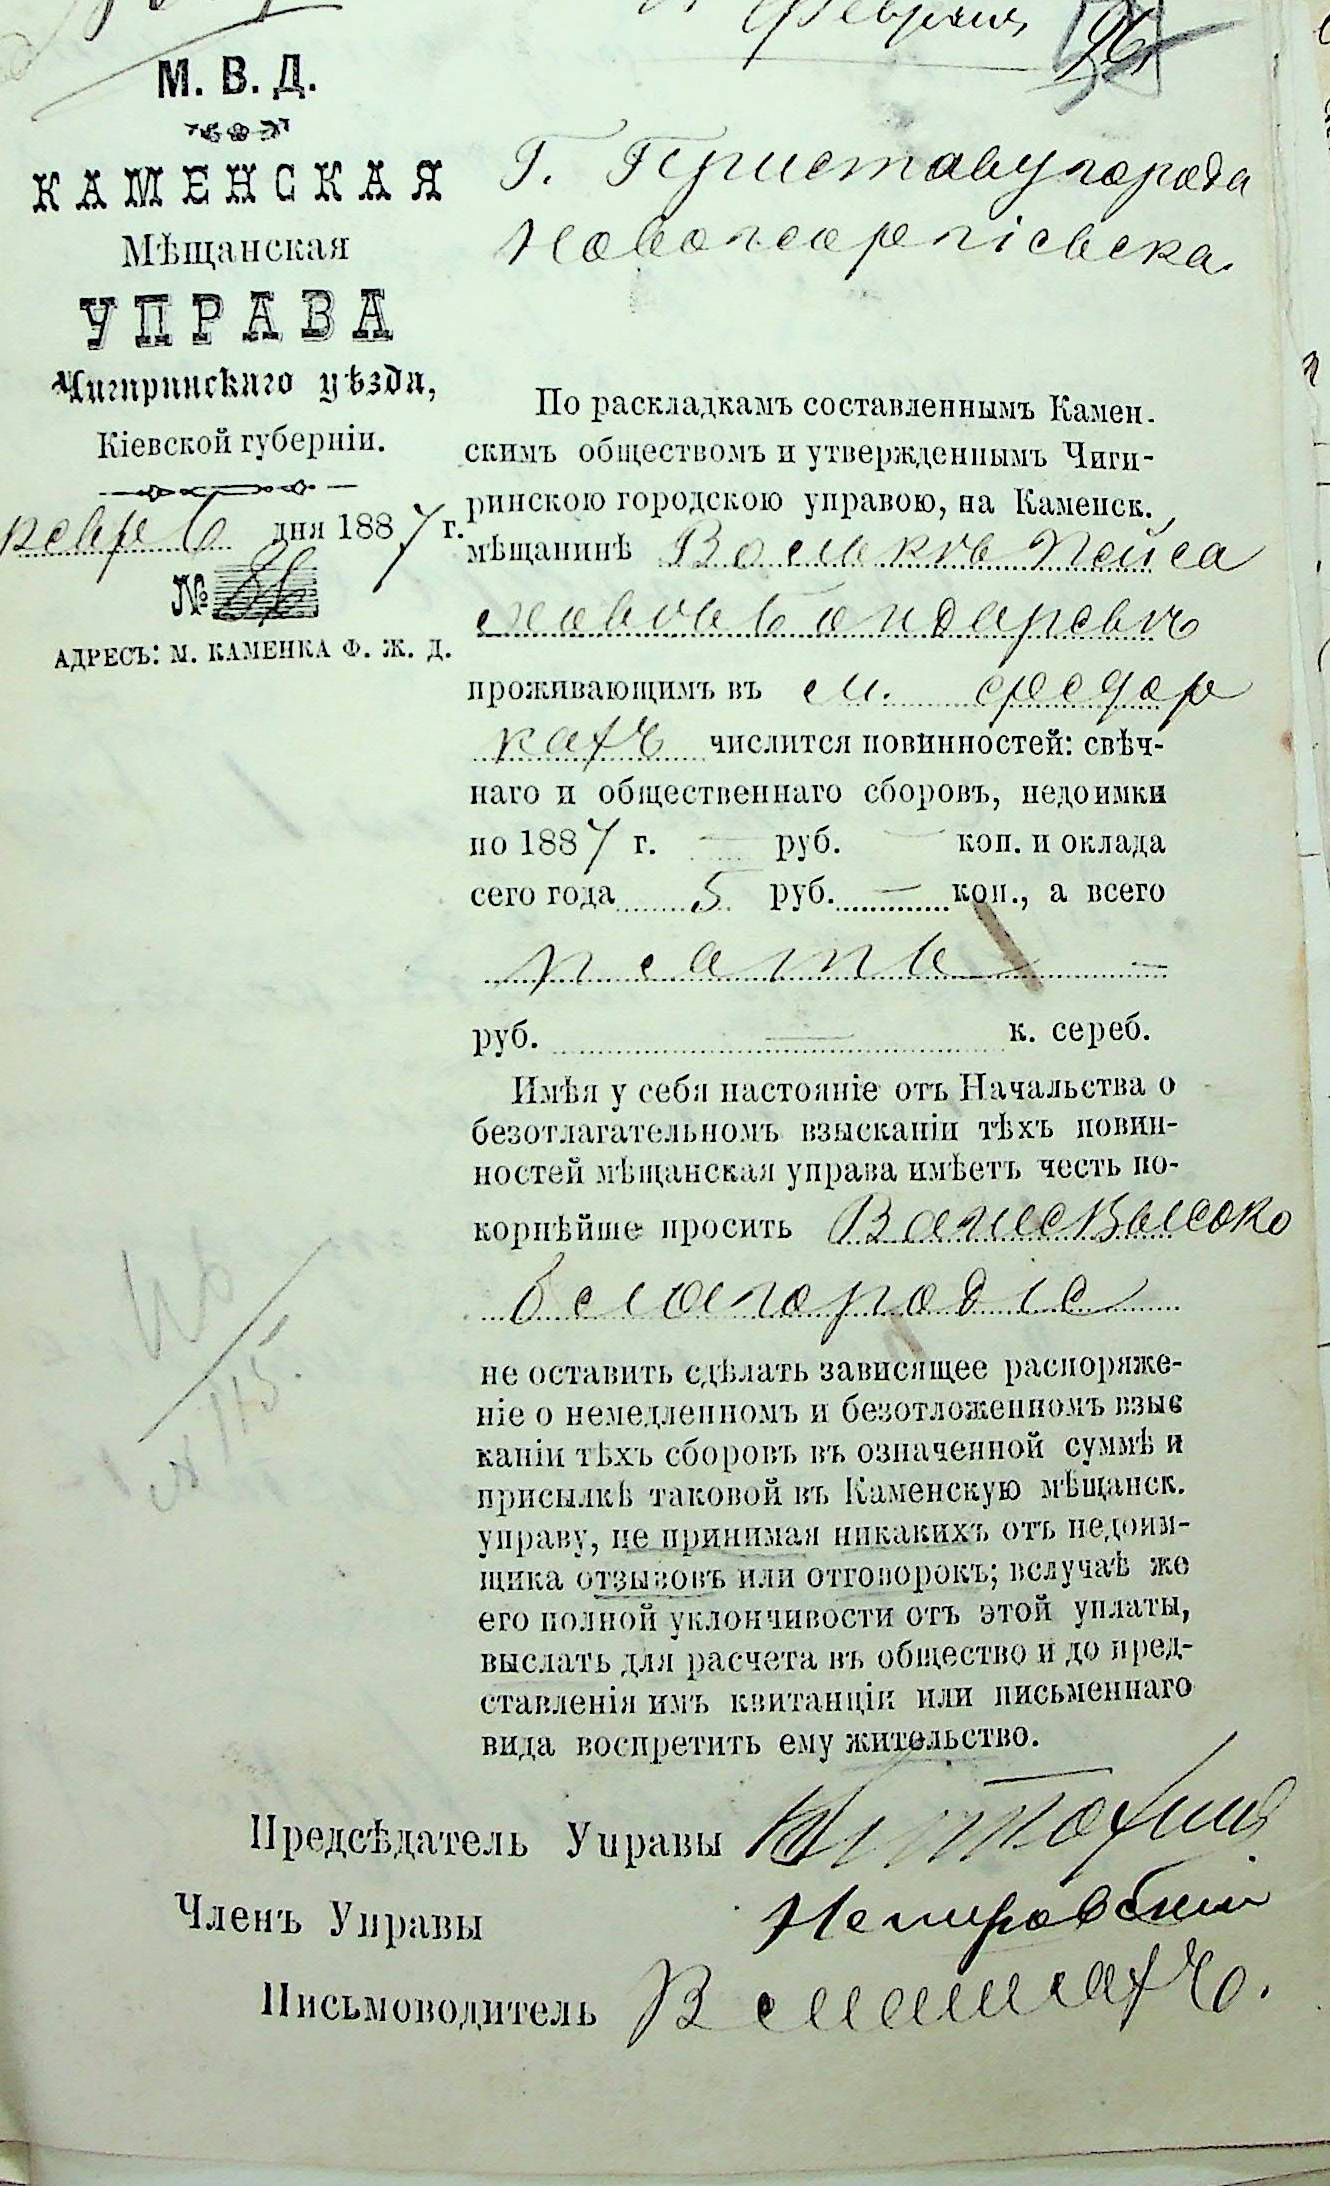 Февраля 26
М. В. Д.
КАМЕНСКАЯ
Мѣщанская
УПРАВА
Чигиринскаго уѣзда,
Кіевской губерніи.
февр 6 дня 1887 г.
№ 86
АДРЕСЪ: М. КАМЕНКА Ф. Ж. Д.
Г. Приставу города
Новогеоргіевска
По раскладкамъ составленнымъ Камен-
скимъ обществомъ и утвержденнымъ Чиги-
ринскою городскою управою, на Каменск.
мѣщанинѣ Волькѣ Пейса
ховѣ Бондаревѣ
проживающимъ въ м. Федор
кахъ числится повинностей: свѣч-
наго и общественнаго сборовъ, недоимки
по 1887 г. — руб. — коп. и оклада
сего года 5 руб. — коп., а всего
пять —
руб. — к. сереб.
Имѣя у себя настояніе отъ Начальства о
безотлагательномъ взысканіи тѣхъ повин-
ностей мѣщанская управа имѣетъ честь по-
корнѣйше просить Ваше Высоко
благородіе
не оставить сдѣлать зависящее распоряже-
ніе о немедленномъ и безотложенномъ взыс
каніи тѣхъ сборовъ въ означенной суммѣ и
присылкѣ таковой въ Каменскую мѣщанск.
управу, не принимая никакихъ отъ недоим-
щика отзывовъ или отговорокъ; вслучаѣ же
его полной уклончивости отъ этой уплаты,
выслать для расчета въ общество и до пред-
ставленія имъ квитанціи или письменнаго
вида воспретить ему жительство.
Предсѣдатель Управы
Членъ Управы Немировскій
Письмоводитель